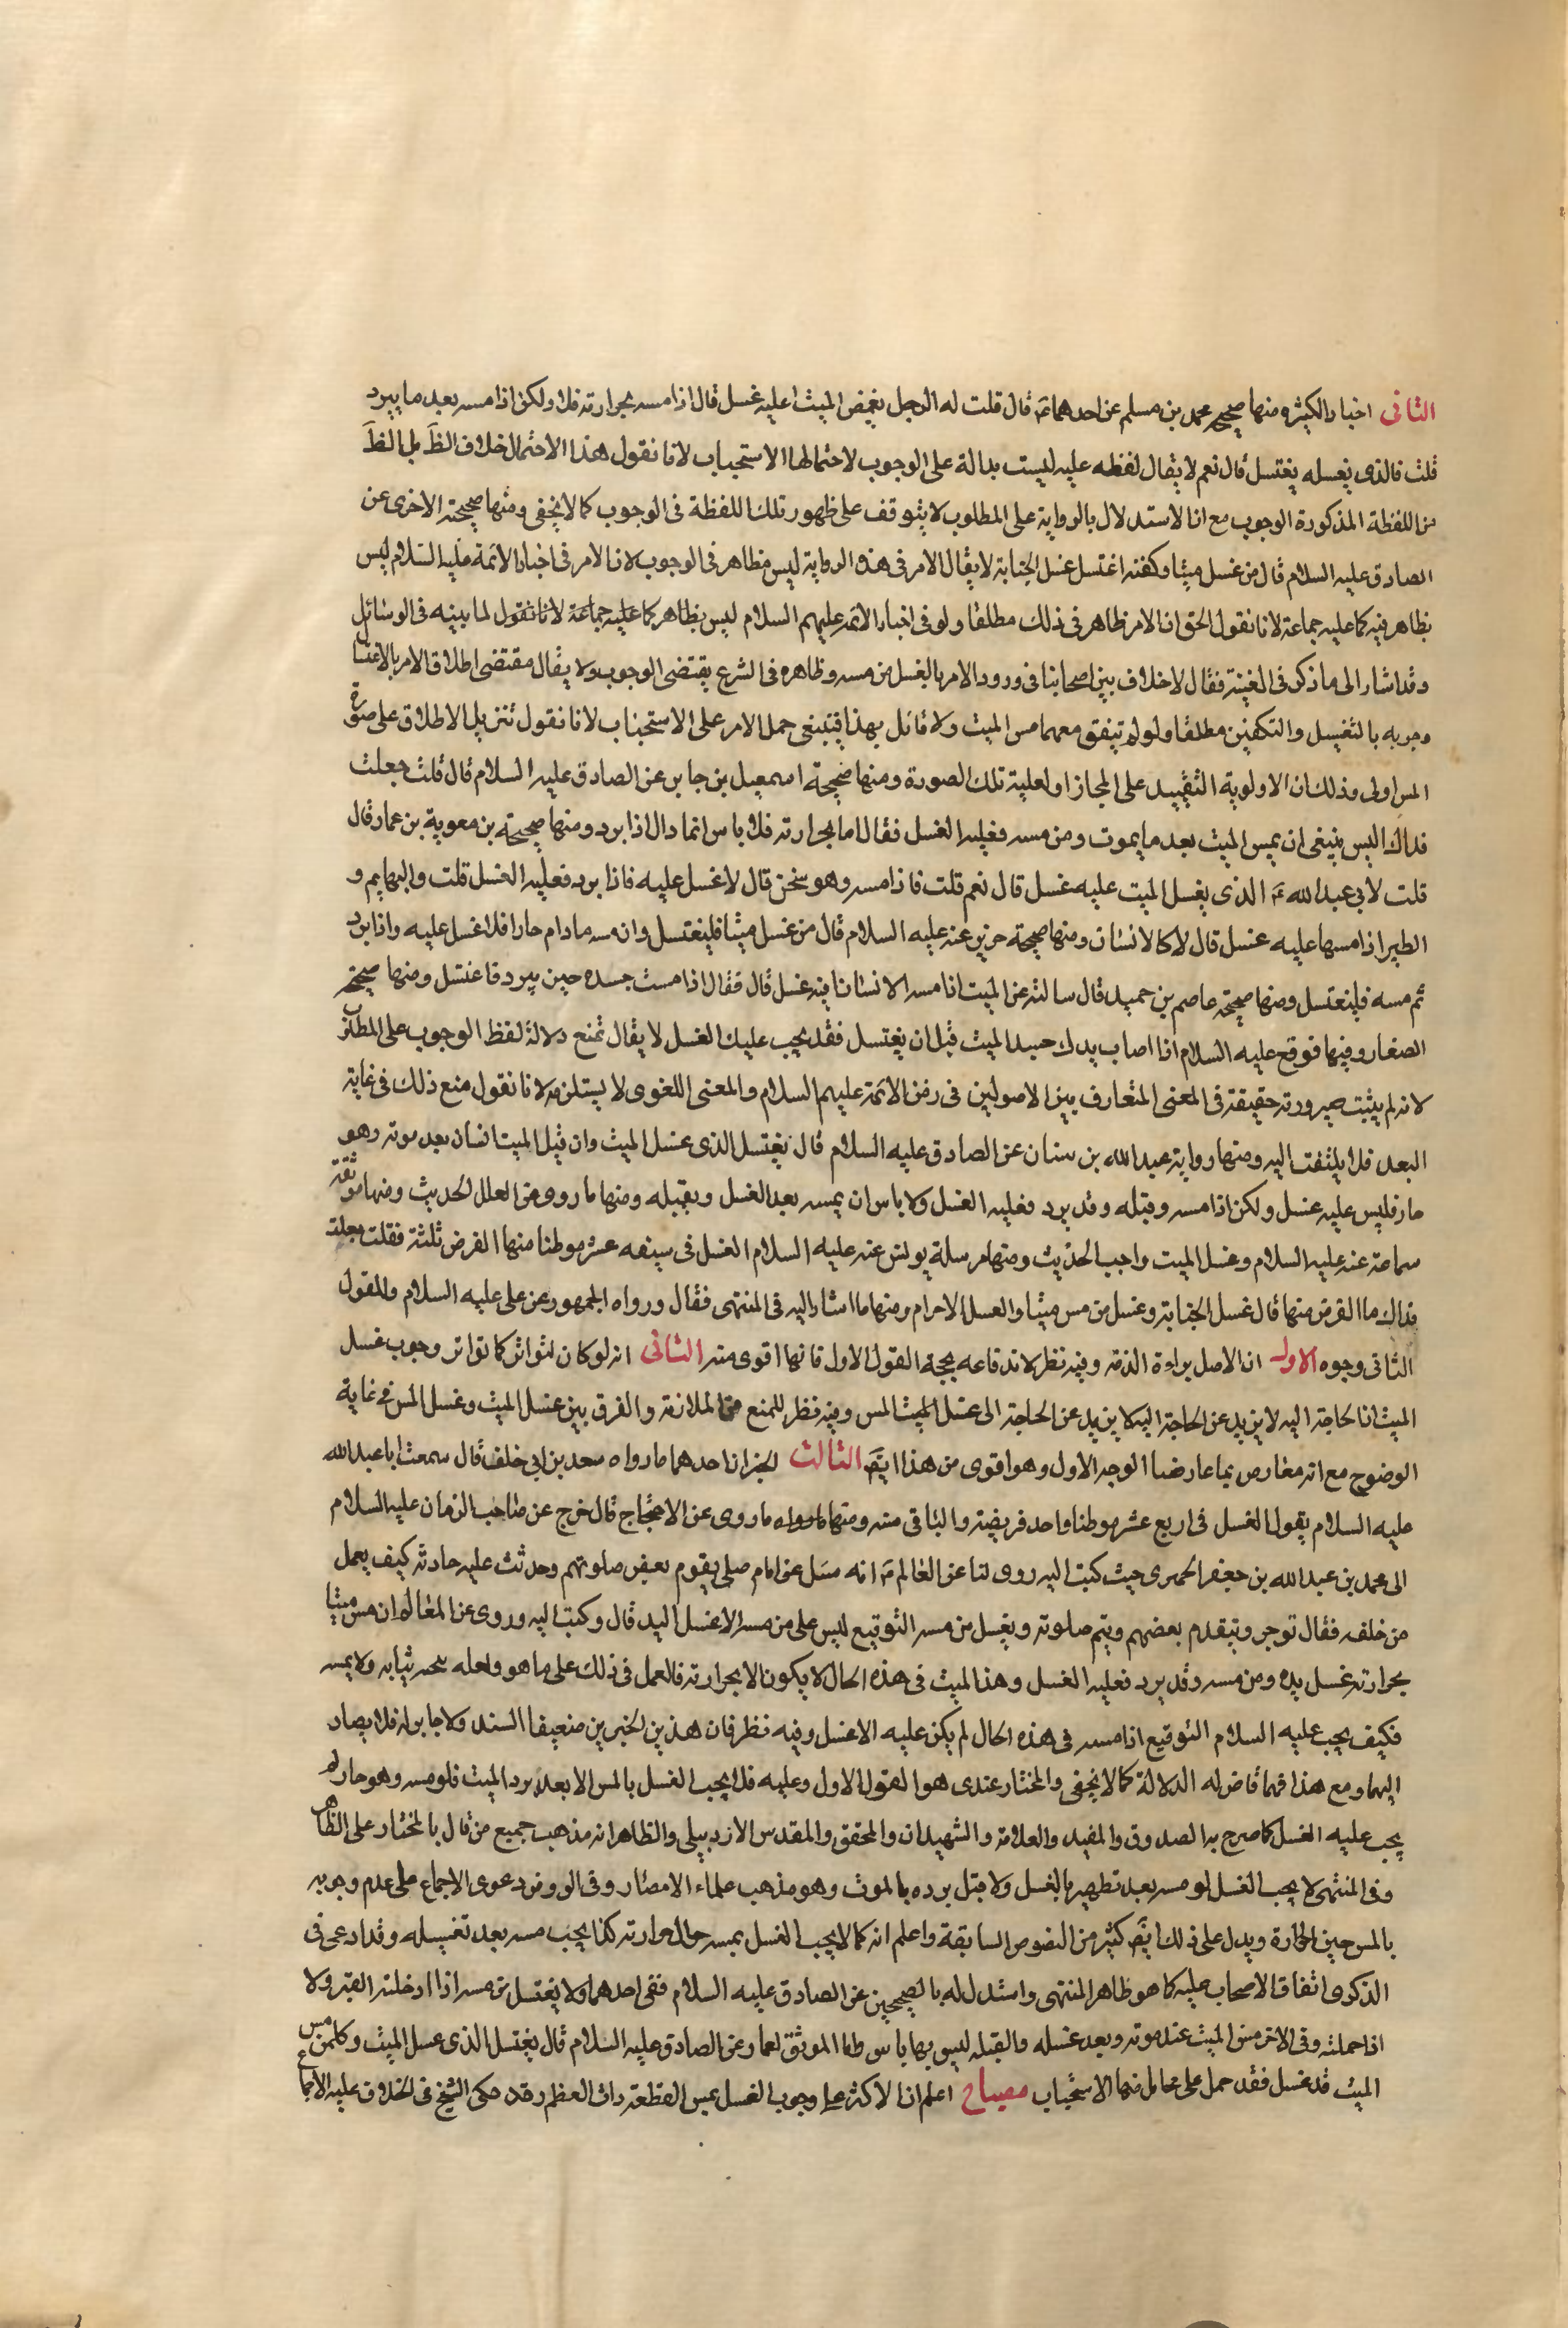 الثانى اخبار الكثيره منها صحيح محمد بن مسلم عن احدهما ع قال قلت له الرجل يغمض الميت اعليه غسل قال اذا مسه بحرارته فلا ولكن اذا مسه بعد ما يبرد
قلت فالذى يغسله يغتسل قال نعم لا يقال لفظه عليه ليست بدالة على الوجوب لاحتمالها الاستحباب لانا نقول هذا الاحتمال خلاف الظ بل الظ
من اللفظة المذكورة الوجوب مع ان الاستدلال بالرواية على المطلوب لا يتوقف على ظهور تلك اللفظة فى الوجوب كما لا يخفى ومنها صحيحته الاخرى عن
الصادق عليه السلام قال من غسل ميتا وكفنه اغتسل غسل الجنابة لا يقال الامر فى هذه الرواية ليس بظاهر فى الوجوب لان الامر فى اخبار الائمة عليه السلام ليس
بظاهر فيه كما عليه جماعة لانا نقول الحق ان الامر ظاهر فى ذلك مطلقا ولو فى اخبار الائمه عليهم السلام ليس بظاهر كما عليه جماعة لانا نقول لما بينه فى الوسائل
وقد اشار الى ما ذكر فى الغنية فقال لا خلاف بين اصحابنا فى ورود الامر بالغسل من مسه وظاهره فى الشرع يقتضى الوجوب ولا يقال مقتضى اطلاق الامر بالاغتسال
وجوبه بالتغسيل والتكفين مطلقا ولو لم تيفق معهما مس الميت ولا قائل بهذا فينبغى حمل الامر على الاستحباب لانا نقول تنزيل الاطلاق على صورة
المس اولى وذلك ان الاولوية التقييد على المجاز اولعلية تلك الصورة ومنها صحيحة اسمعيل بن جابر عن الصادق عليه السلام قال قلت جعلت
فداك اليس ينبغى ان يمس الميت بعد ما يموت ومن مسه فعليه الغسل فقال اما بحرارته فلا باس انما ذاك اذا برد ومنها صحيحة بن معوية بن عمار قال
قلت لابى عبد الله ع الذى يغسل الميت عليه غسل قال نعم قلت فاذا مسه وهو سخن قال لا غسل عليه فاذا برد فعليه الغسل قلت والبهايم و
الطير اذا مسها عليه غسل قال لا كالانسان ومنها صحيحة حريز عنه عليه السلام قال من غسل ميتا فليغتسل وان مسه مادام حارا فلا غسل عليه واذا برد
ثم مسه فليغتسل ومنها صحيحة عاصم بن حميد قال سالته عن الميت اذا مسه الانسان افيه غسل قال فقال اذا مست جسده حين يبرد فاغتسل ومنها صحيحة
الصفار وفيها فوقع عليه السلام اذا اصاب يدك جسد الميت قبل ان يغتسل فقد يجب عليك الغسل لا يقال نمنع دلالة لفظ الوجوب على المطلوب
لانه لم يثبت صيرورته حقيقة فى المعنى المتعارف بين الاصولين فى زمن الائمة عليهم السلام والمعنى اللغوى لا يستلزمه لانا نقول منع ذلك فى غاية
البعد فلا يلتفت اليه ومنها رواية عبد الله بن سنان عن الصادق عليه السلام قال يغتسل الذى غسل الميت وان قبل الميت انسان بعد موته وهو
حار فليس عليه غسل ولكن اذا مسه وقبله وقد برد فعليه الغسل ولا باس ان يمسه بعد الغسل ويقبله ومنها ما روى عن العلل الحديث ومنها موثقة
سماعة عنه عليه السلام وغسل الميت واجب الحديث ومنها مرسلة يونس عنه عليه السلام الغسل فى سبعه عشر موطنا منها الفرض ثلثة فقلت جعلت
فداك ما الفرض منها قال غسل الجنابة وغسل من مس ميتا والغسل الاحرام ومنها ما اشار اليه فى المنتهى فقال ورواه الجمهور عن على عليه السلام وللقول
الثانى وجوه الاول ان الاصل براءة الذمة وفيه نظر لاندفاعه بحجة القول الاول فانها اقوى منه الثانى انه لو كان لتواتر كما تواتر وجوب غسل
الميت اذ الحاجة اليه لا يزيد عن الحاجة اليه كا يزيد عن الحاجة الى غسل الميت المس وفيه نظر للمنع من الملازمة والفرق بين غسل الميت وغسل المس فى غاية
الوضوح مع انه معارض بما عارضنا الوجه الاول وهو اقوى من هذا ايض الثالث الخبران احدهما ما رواه سعد بن ابى خلف قال سمعت ابا عبد الله
عليه السلام يقول الغسل فى اربع عشر موطنا واحد فريضة والباقى سنة ومنها ما روى عن الاحتجاج قال خرج عن صاحب الزمان عليه السلام
الى محمد بن عبد الله بن جعفر الحميرى حيث كتب اليه روى لنا عن العالم ع انه سئل عن امام صلى بقوم بعض صلوتهم وحدثت عليه حادثة كيف يعمل
من خلفه فقال توخر ويتقدم بعضهم ويتم صلوته ويغسل من مسه التوقيع ليس على من مسه الا غسل اليد قال وكتب اليه وروى عن العالم ان من مس ميتا
بحرارته غسل يده ومن مسه وقد برد فعليه الغسل وهذا الميت فى هذه الحال لا يكون الا بحرارته فالعمل فى ذلك على ما هو ولعله ينحيه بثيابه ولا يمسه
فكيف يجب عليه السلام التوقيع اذا مسه فى هذه الحال لم يكن عليه الا غسل وفيه نظر فان هذين الخبرين ضعيفا السند ولا جابر له فلا يصار
اليهما ومع هذا فهما قاض له الدلالة كما لا يخفى والمختار عندى هو القول الاول وعليه فلا يجب الغسل بالمس الا بعد برد الميت فلو مسه وهو حار لم
يجب عليه الغسل كما صرح به الصدوق والمفيد والعلامة والشهيدان والمحقق والمقدس الازدبيلى والظاهر انه مذهب جميع من قال بالمختار على الظاهر
وفى المنتهى لا يجب الغسل لو مسه بعد تطهيره بالغسل ولا قبل برده بالموت وهو مذهب علماء الامصار وفى الو وفود دعوى الاجماع على عدم وجوبه
بالمس حين الحارة ويدل على ذلك ايض كثير من النصوص السابقة واعلم انه كما لا يجب الغسل بمسه حال حرارته كذا يجب مسه بعد تغسيله وقد ادعى فى
الذكرى اتفاق الاصحاب عليه كا هو ظاهر المنتهى واستدل له بالصحيحين عن الصادق عليه السلام ففى احدهما ولا يغتسل من مسه اذا ادخلته القبر ولا
اذا حملته وفى الاخر مس الميت عند موته وبعد غسله والقبله ليس بها باس واما الموثق لعمار عن الصادق عليه السلام قال يغتسل الذى غسل الميت وكل من مس
الميت قد غسل فقد حمل على محامل منها الاستحباب مصباح اعلم ان الاكثر على وجوب الغسل بمس القطعة ذات العظم وقد حكى الشيخ فى الخلاف عليه الاجماع